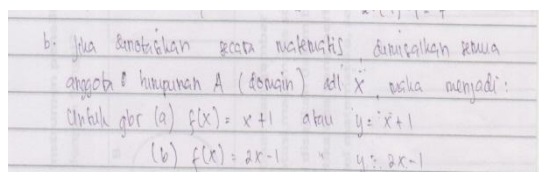 b. Jika dinotasikan secara matematis, dimisalkan semua
anggota himpunan A (domain) adl x, maka menjadi:
Untuk gbr (a) f(x) = x+1 atau y = x+1
(b) f(x) = 2x-1 " y = 2x-1